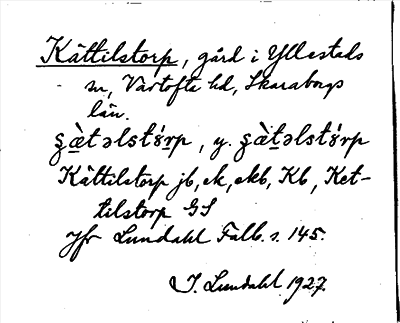 Kättilstorp, gård i Yllestads
sn, Vartofta hd, Skaraborgs
län.
ʂæ̀təlstɤ́rp, y. ʂæ̀təlstɤ́rp
Kättilstorp jb, ek, ekb, Kb, Ket-
tilstorp GS
Jfr Lundahl Falb. s. 145.
I. Lundahl 1927.